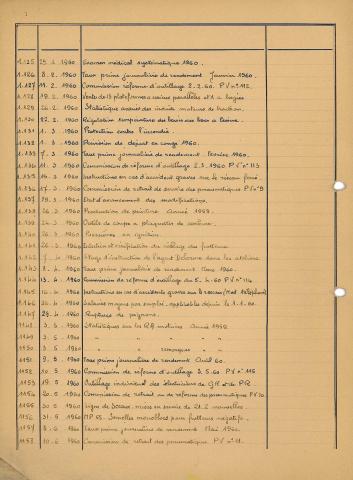 1.125 25. 2. 1960 Examen médical systématique 1960.
1.126 8. 2. 1960 Taux prime journalière de rendement Janvier 1960.
1.127 11. 2. 1960 Commission réforme d'outillage 2.2.60. P.V n° 112.
1.128 18. 2. 1960 Vente de 13 plateformes
1.129 26. 2. 1960 Statistique avaries
1130 22. 2. 1960
1.131 1. 3. 1960 Protection contre l'incendie.
1.132 1. 3. 1960 Prévision de départ en congé 1960.
1.133 7. 3. 1960 Taux prime journalière de rendement Février 1960.
1.134 11. 3. 1960 Commission de réforme d'outillage 2.3.1960 P.V n° 113
1.135 14. 3. 1960 Instructions en cas d'accident graves sur le réseau
1.136 17. 3. 1960 Commission de retrait de service des pneumatiques P.V n° 9
1.137 18. 3. 1960 Etat d'avancement des modifications.
1.138 26. 3. 1960 Production de peinture Année 1959.
1.139 24. 3. 1960 Outils de coupe à plaquettes de carbure.
1.140 26. 3. 1960
1.141 26. 3. 1960
1.142 7. 4. 1960 Stage d'instruction de l'agent Delorme dans les ateliers.
1.143 8. 4. 1960 Taux prime journalière de rendement Mars 1960.
1.144 13. 4. 1960 Commission de réforme d'outillage du 5.4.60 P.V n° 114
1.145 1960 Instructions en cas d'accidents graves sur le réseau
1.146 26. 4. 1960 Salaires moyens par emploi, applicables depuis le 1.1.60.
1.147 29. 4. 1960 Ruptures de pignons.
1148 3. 5. 1960 Statistiques sur les RM motrices Année 1959
1149 3. 5. 1960 " " "
1150 3. 5. 1960 " remorques " "
1151 9. 5. 1960 Taux prime journalière de rendement Avril 60.
1152 10. 5. 1960 Commission de réforme d'outillage 3.5.60 P.V n° 115
1153 18. 5. 1960 Outillage individuel des électriciens de GR et de PR.
1154 20. 5. 1960 Commission de retrait ou de réforme des pneumatiques PV 10
1155 30. 5. 1960 Ligne de Sceaux. mises en service de 21.2 nouvelles
1156 31. 5. 1960 MP 55. Semelles monoblocs pour frotteurs négatifs.
1157 8. 6. 1960 Taux prime journalière de rendement Mai 1960.
1158 10. 6. 1960 Commission de retrait des pneumatiques P.V n° 11.